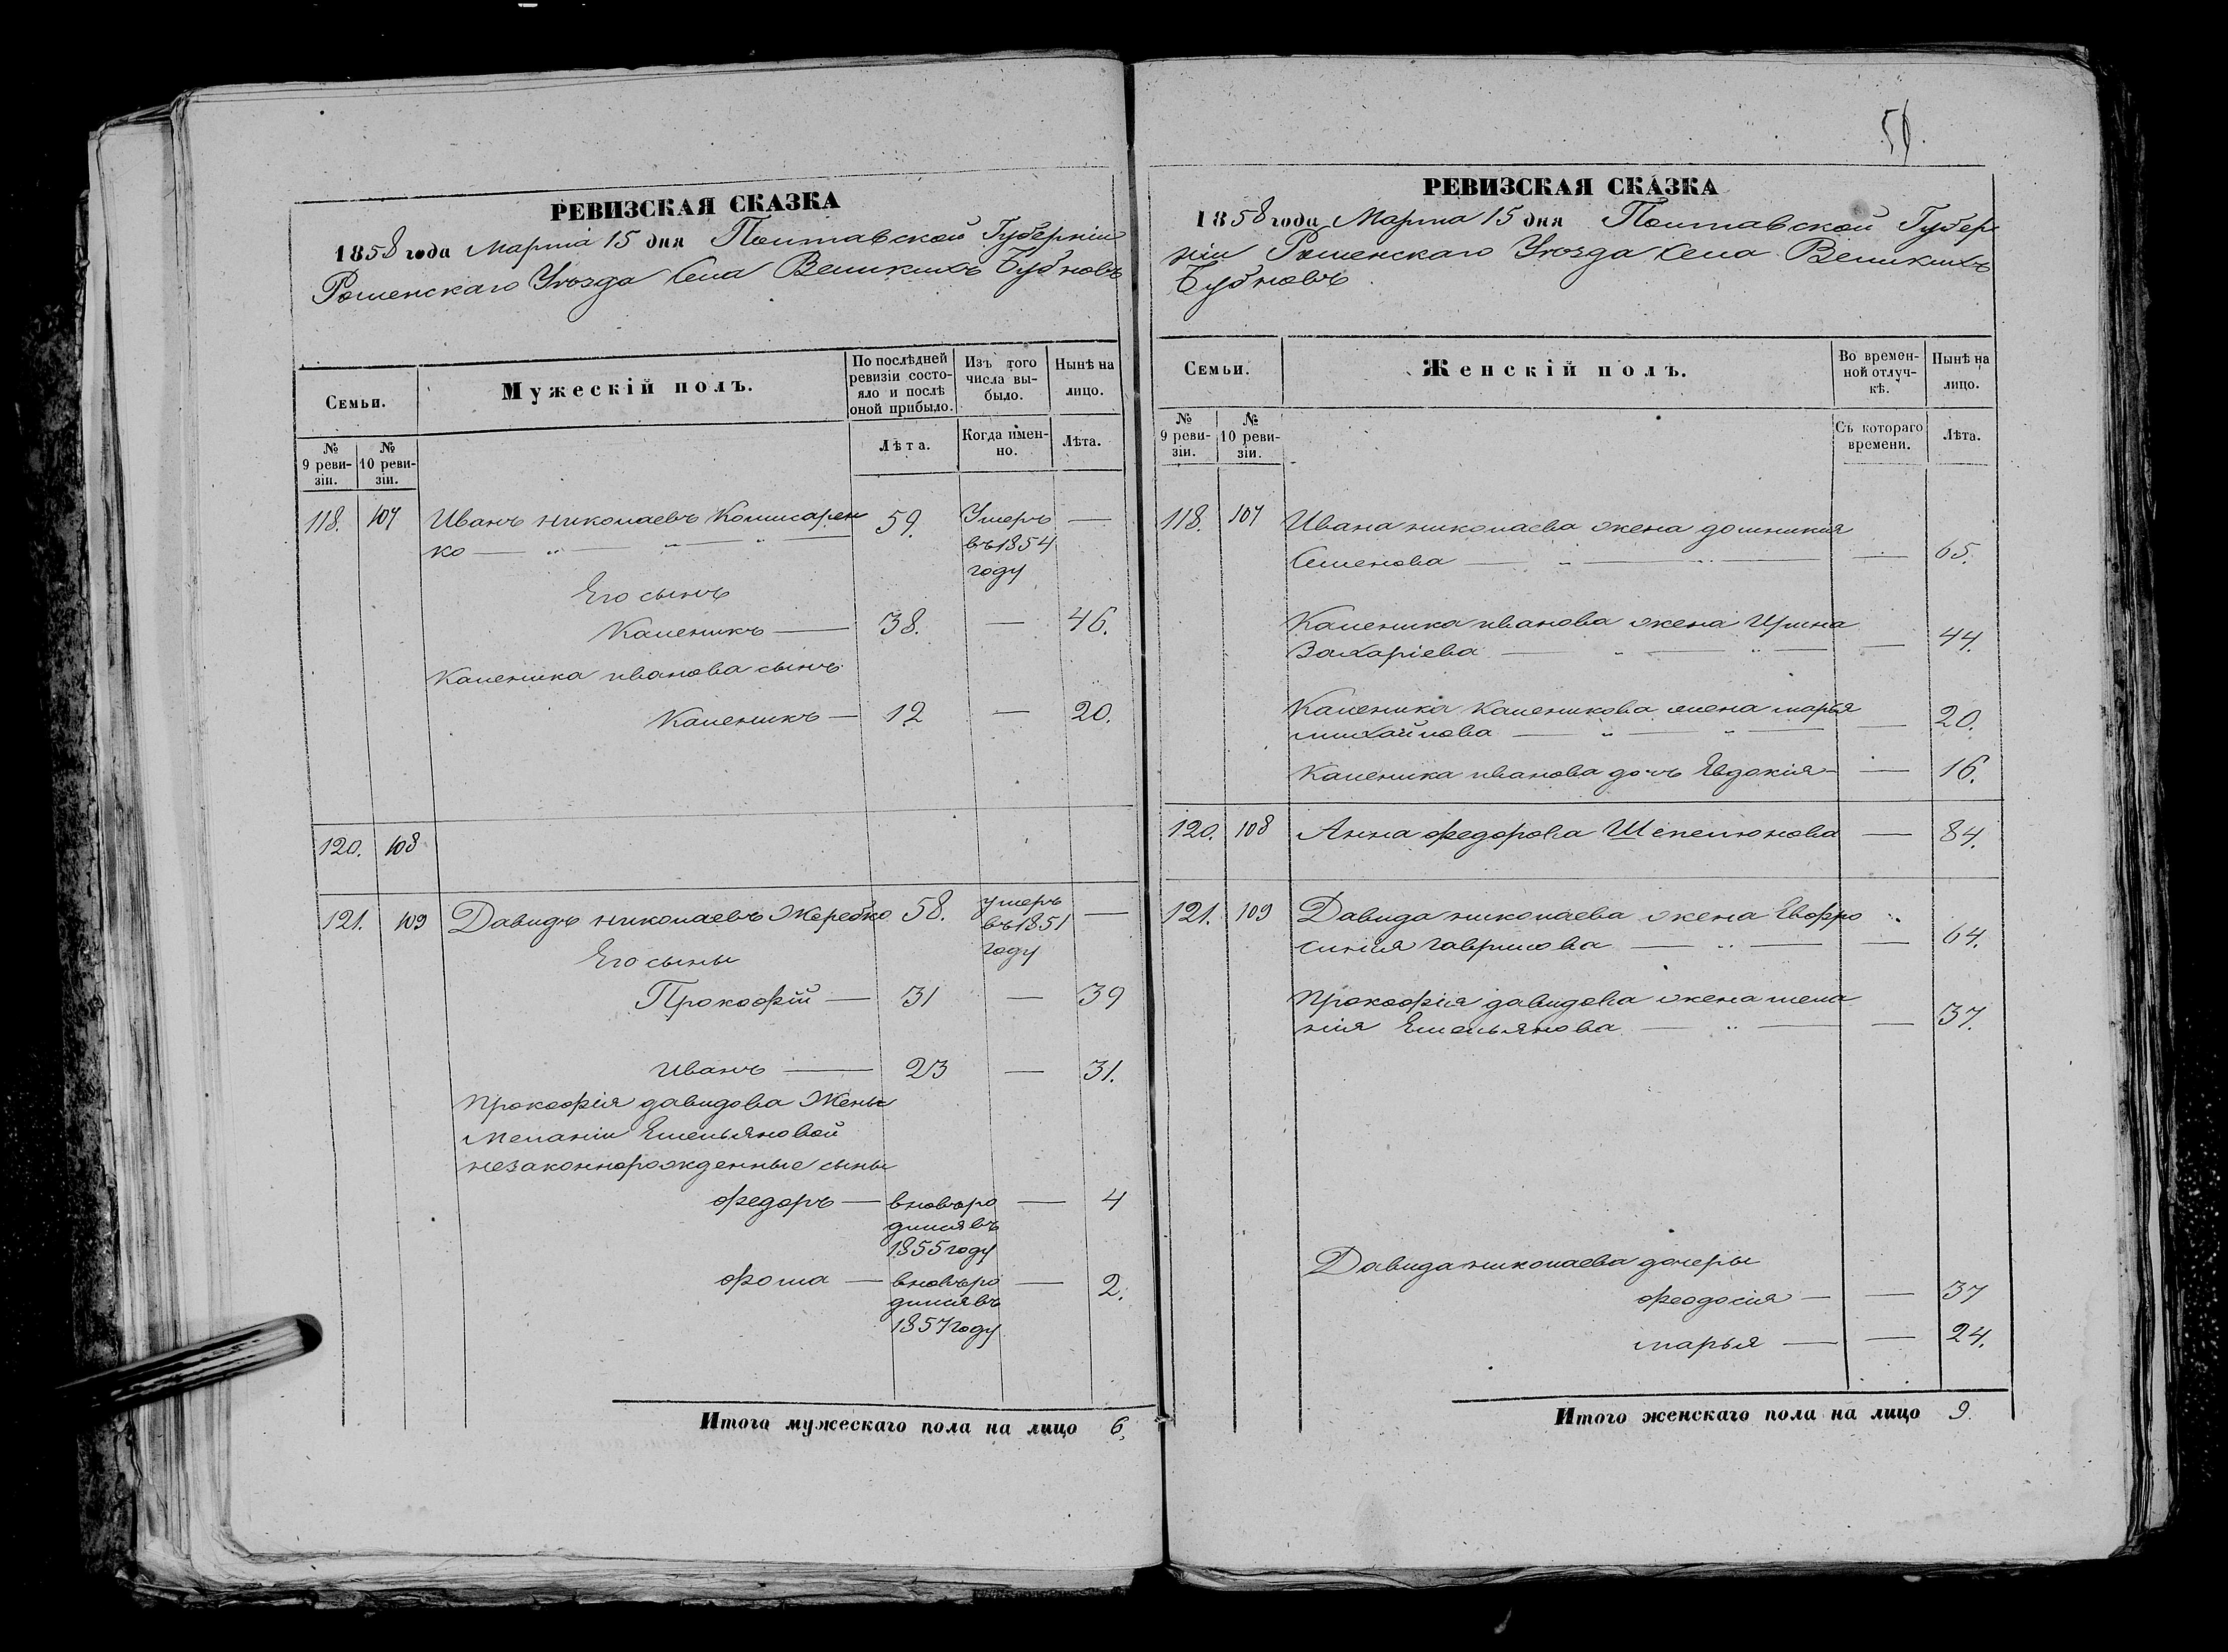 РЕВИЗСКАЯ СКАЗКА
1858 года Марта 15 дня Полтавской Губерніи
Роменскаго Уѣзда Села Великихъ Бубновъ
Семьи.
Мужескій полъ.
По послѣдней ревизіи состояло и послѣ оной прибыло.
Изъ того числа выбыло.
Нынѣ на лицо.
№ 9 ревизіи.
№ 10 ревизіи.
Лѣта.
Когда именно.
Лѣта.
118. 107 Иванъ николаевъ Комисарен 59. Умеръ —
ко — " — " — " — въ 1854
году
Его сынъ
Каленикъ — 38. — 46.
Каленика иванова сынъ
Каленикъ — 12 — 20.
120. 108
121. 109 Давидъ николаевъ Жеребко 58. умеръ —
въ 1851
году
Его сыны
Прокофій — 31 — 39
иванъ — 23 — 31.
Прокофія давидова Жены
Меланіи Емельяновой
незаконнорожденные сыны
федоръ — вновьро — 4
дилсявъ
1855 году
фома — вновьро — 2.
дилсявъ
1857 году
Итого мужескаго пола на лицо 6.
51.
РЕВИЗСКАЯ СКАЗКА
1858 года Марта 15 дня Полтавской Губер
ніи Роменскаго Уѣзда Села Великихъ
Бубновъ
Семьи.
Женскій полъ.
Во временной отлучкѣ.
Нынѣ на лицо.
№ 9 ревизіи.
№ 10 ревизіи.
Съ котораго времени.
Лѣта.
118. 107 Ивана николаева жена домникия
Семенова — " — " — — 65.
Каленика иванова жена Ирина
Захаріева — " — " — — 44.
Каленика Каленикова жена марья
михайлова — " — " — — 20.
Каленика иванова дочь Евдокия — — 16.
120. 108 Анна федорова Шепелюнова — 84.
121. 109 Давида николаева жена Евфро
синия гаврилова — " — — 64.
Прокофія давидова жена мела
ния Емельянова — " — — 37.
Давида николаева дочеры
феодосия — — 37
марья — — 24.
Итого женскаго пола на лицо 9.